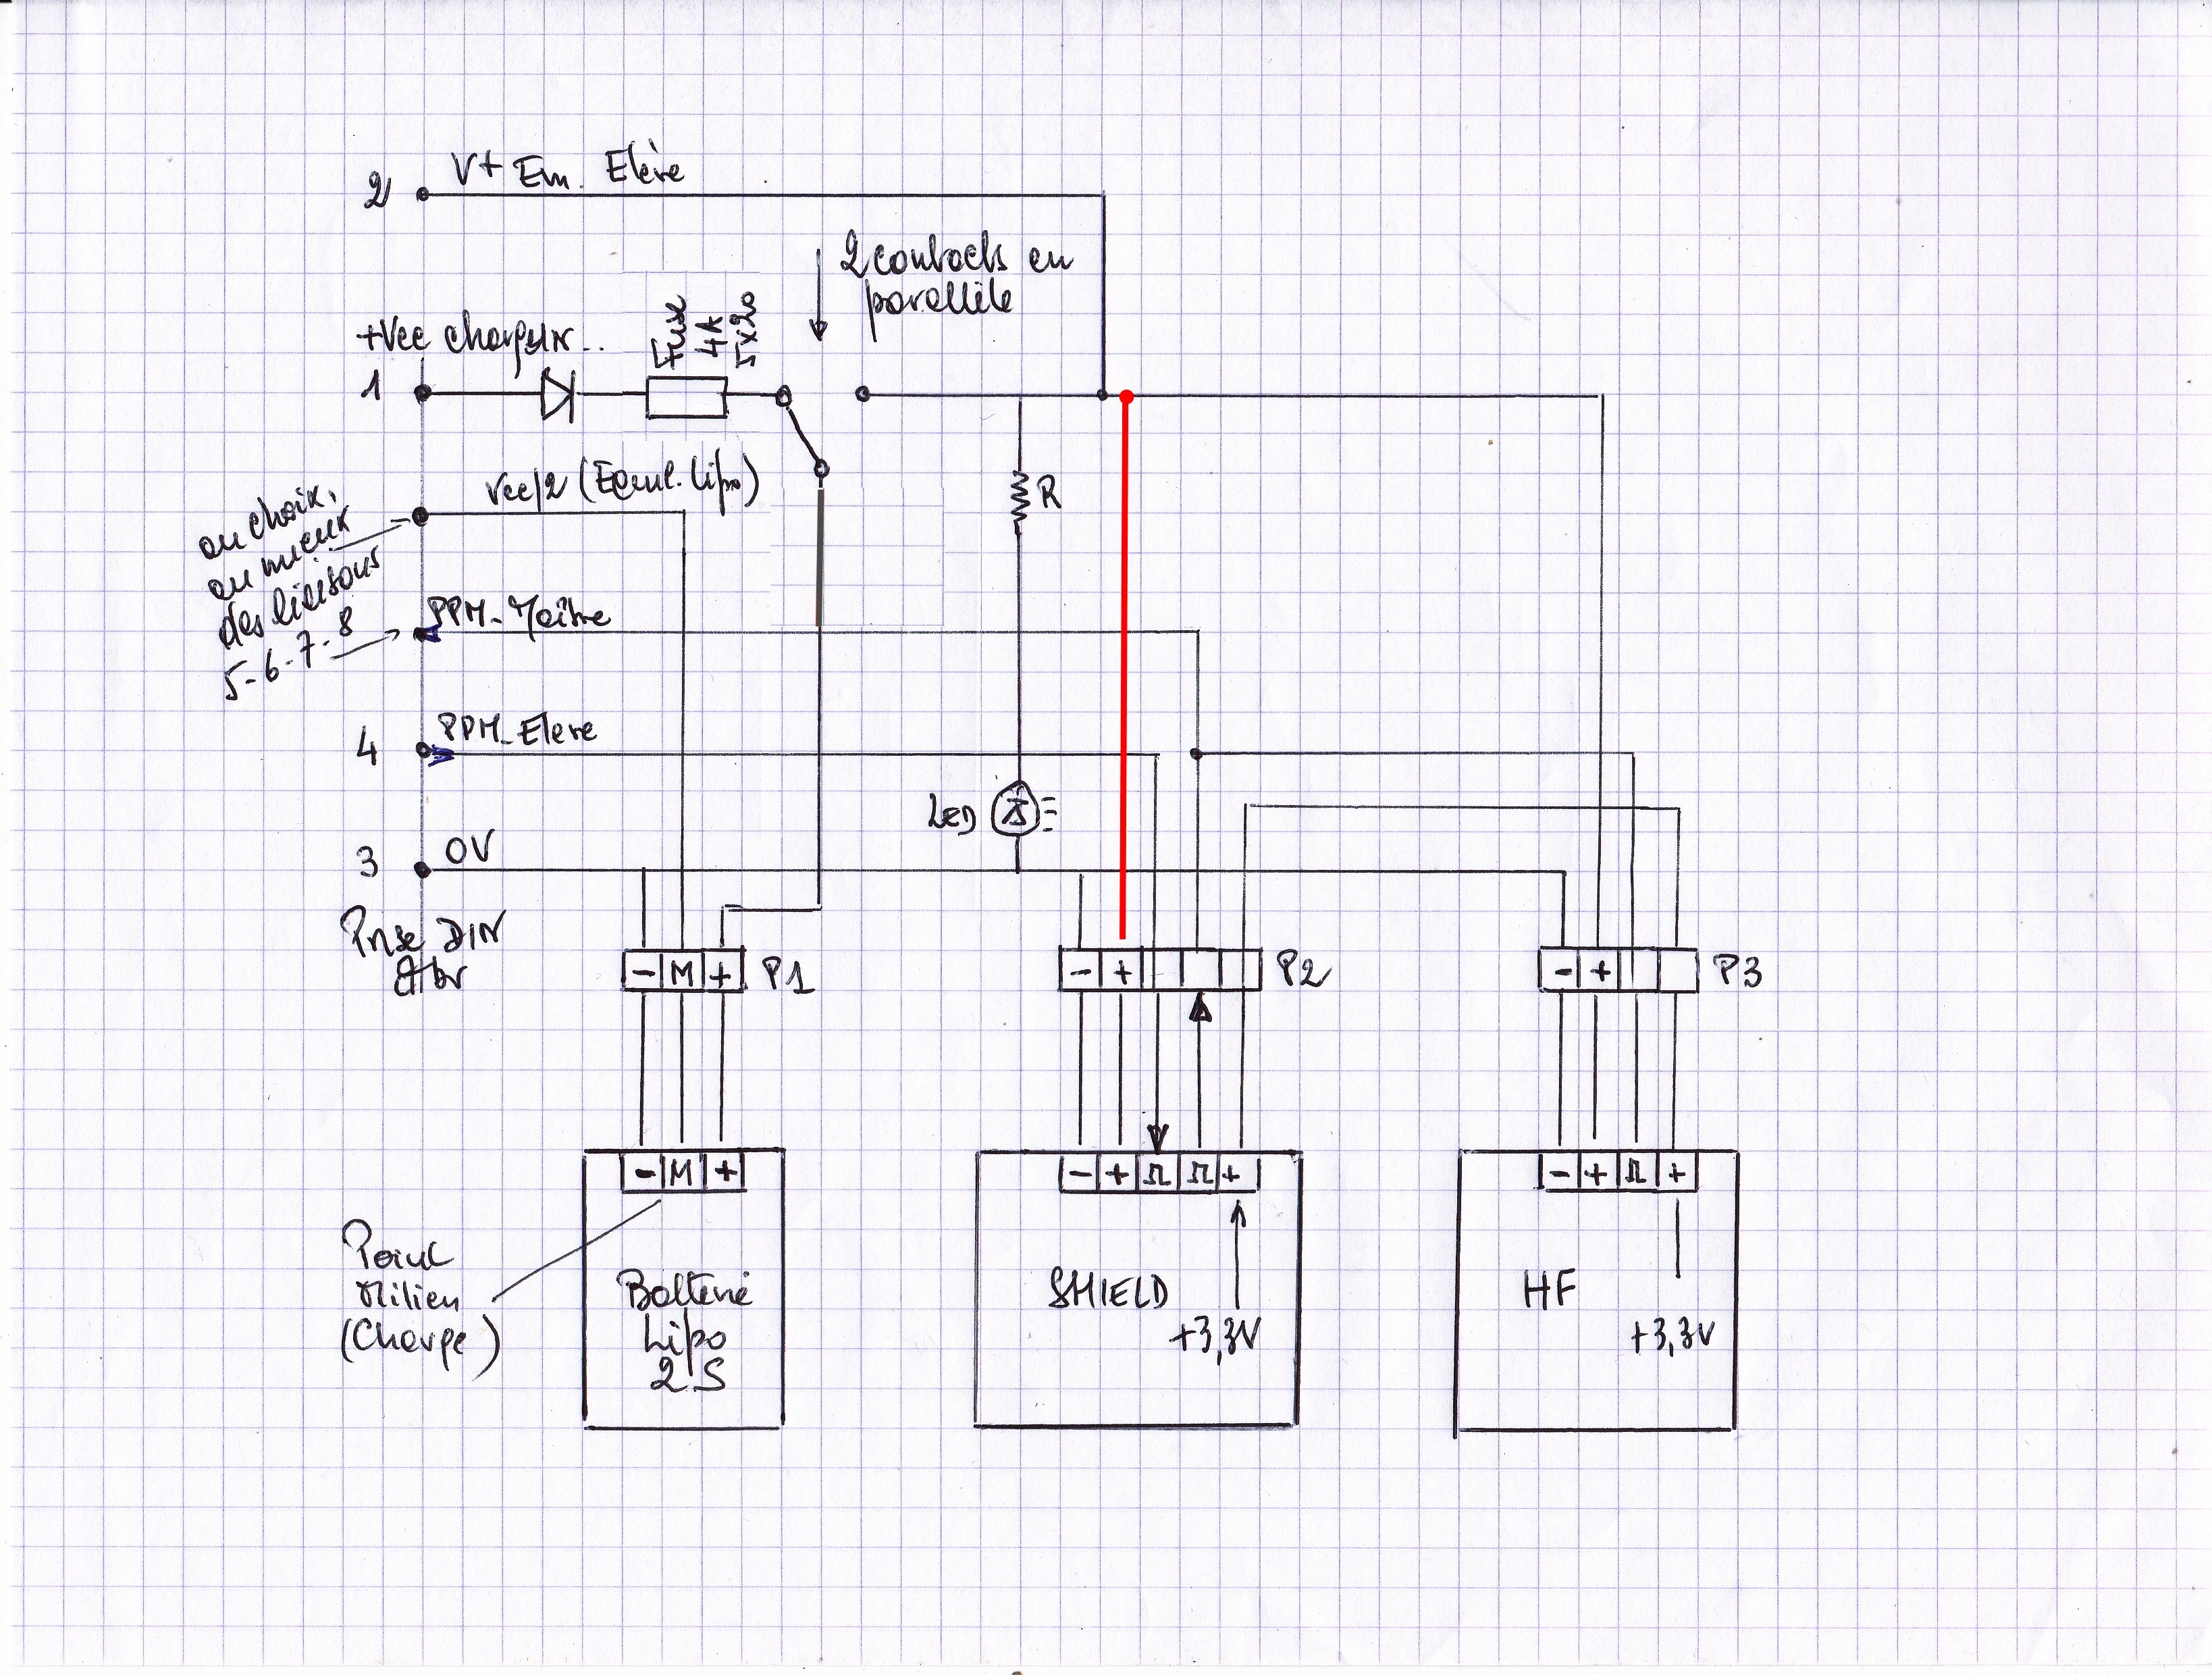 2 V+ Em. Elève
2 contacts en
parallèle
Fuse
4A
5x20
+Vcc chargeur..
1
Vcc/2 (Equil. Lipo)
R
au choix,
au mieux
des liaisons
5-6-7-8
PPM_Maître
4 PPM_Eleve
LED
3 0V
Prise DIN
- M + P1
- + P2
- + P3
- M +
- + Π Π +
- + Π +
Point
Milien
(Charge)
Batterie
Lipo
2S
SHIELD
+3,3V
HF
+3,3V